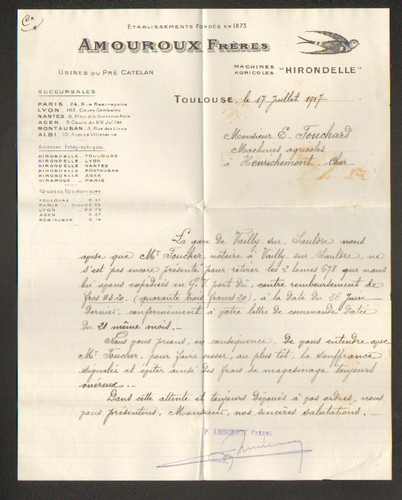 Etablissements Fondés en 1873
Amouroux Frères
Usines du Pré Catelan
Machines
Agricoles "Hirondelle"
Succursales
Paris, 24, Rue Beaurepaire
Lyon, 183, Cours Gambetta
Nantes,
Agen, 9, Cours du XIV Juillet
Montauban, 3, Rue des Lices
Albi, 10, Avenue Villeneuve
Adresses Télégraphiques
Hirondelle _ Toulouse
Hirondelle _ Lyon
Hirondelle _ Nantes
Hirondelle _ Montauban
Hirondelle _ Agen
_ Paris
Adresses Téléphoniques
Toulouse
Paris
Lyon
Agen 0.27
Montauban
Toulouse, le 17 Juillet 1917
Monsieur E. Touchard
Machines agricoles
à Henrichemont. Cher
La gare de Vailly-sur-Sauldre nous
avise que Mr. Foucher, notaire à Vailly-sur-Sauldre, ne
s'est pas encore présenté pour retirer les 2 lames 678 que nous
lui avons expédiées en G.V. port dû, contre remboursement de
frcs 43.20 (quarante trois francs 20), à la date du 26 Juin
dernier, conformément à votre lettre de commande datée
du 21 même mois.
Nous vous prions, en conséquence, de vous entendre avec
Mr. Foucher, pour faire cesser, au plus tôt, la souffrance
signalée et éviter ainsi des frais de magasinage toujours
onéreux...
Dans cette attente et toujours dévoués à vos ordres, nous
vous présentons, Monsieur, nos sincères salutations.
P. Amouroux Frères